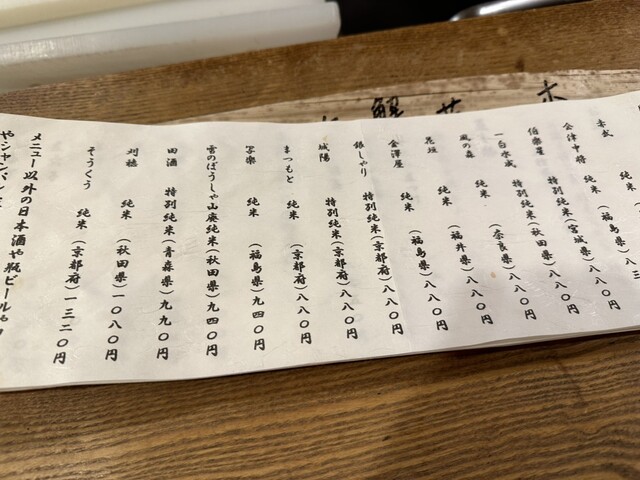 純米
会津中将 純米(福島県)八八〇円
伯樂星 特別純米(宮城県)八八〇円
一白水成 特別純米(秋田県)八八〇円
風の森 純米(奈良県)八八〇円
花垣 純米(福井県)八八〇円
金澤屋 純米(福島県)八八〇円
銀しゃり 特別純米(京都府)八八〇円
城陽 特別純米(京都府)八八〇円
まつもと 純米(京都府)八八〇円
写樂 純米(福島県)九四〇円
雪のぼうしゃ山廃純米(秋田県)九四〇円
田酒 特別純米(青森県)九九〇円
刈穂 純米(秋田県)一〇八〇円
そうくう 純米(京都府)一三二〇円
メニュー以外の日本酒や瓶ビールや
やシャンパン